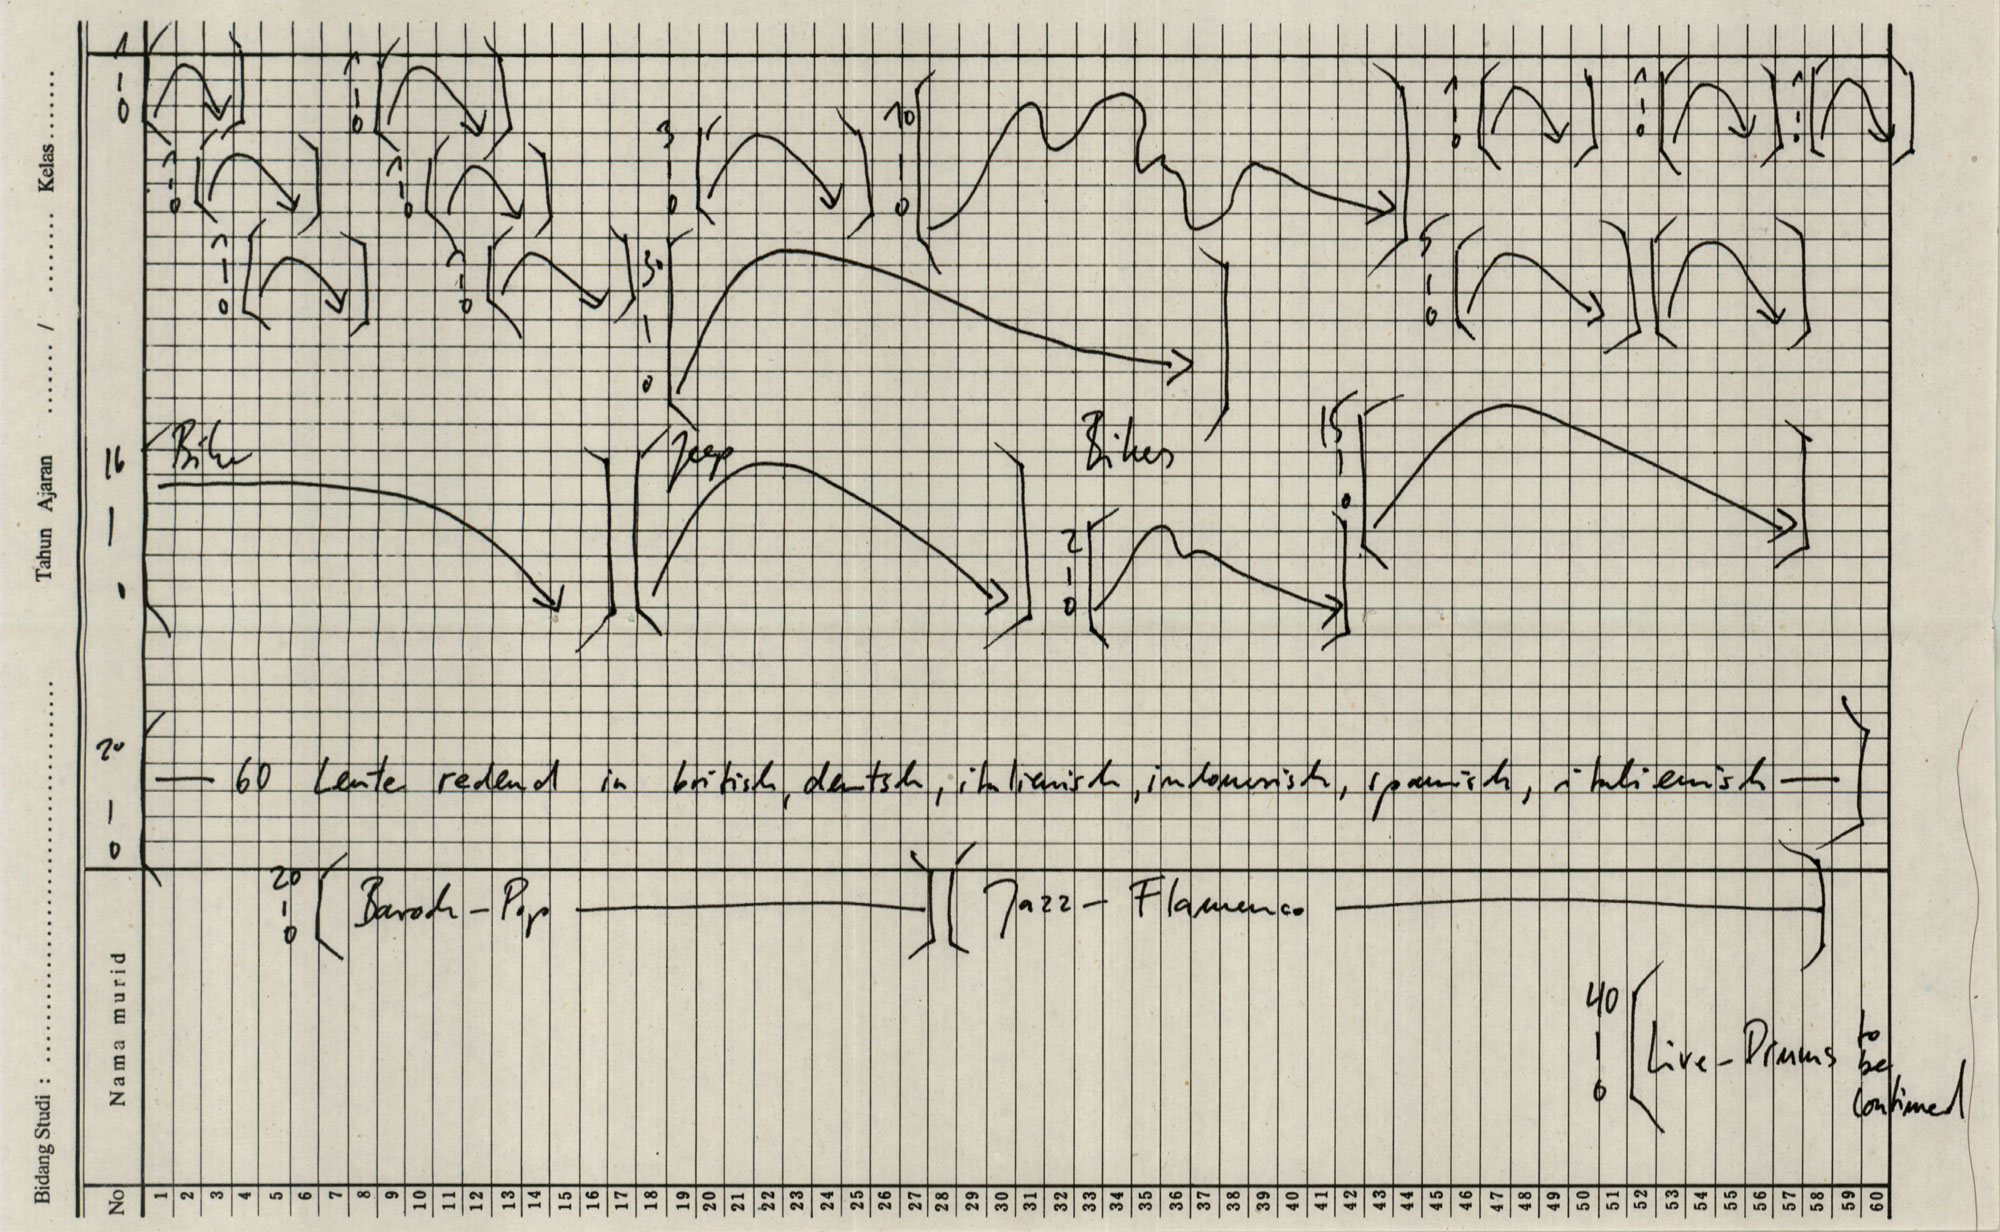 Kelas........
Tahun Ajaran ...... / ........
Bidang Studi : ..............................
1 - 0
1 - 0
1 - 0
1 - 0
1 - 0
1 - 0
3 - 0
10 - 0
1 - 0
1 - 0
1 - 0
30 - 0
5 - 0
16 - 0
Bike
Jeep
Bikes
2 - 0
15 - 0
20 - 0
— 60 Leute redend in british, deutsch, italienisch, indonesisch, spanisch, italienisch —
20 - 0
Barock - Pop
Jazz - Flamenco
40 - 0
Live - Drums to be continued
Nama murid
No
1 2 3 4 5 6 7 8 9 10 11 12 13 14 15 16 17 18 19 20 21 22 23 24 25 26 27 28 29 30 31 32 33 34 35 36 37 38 39 40 41 42 43 44 45 46 47 48 49 50 51 52 53 54 55 56 57 58 59 60